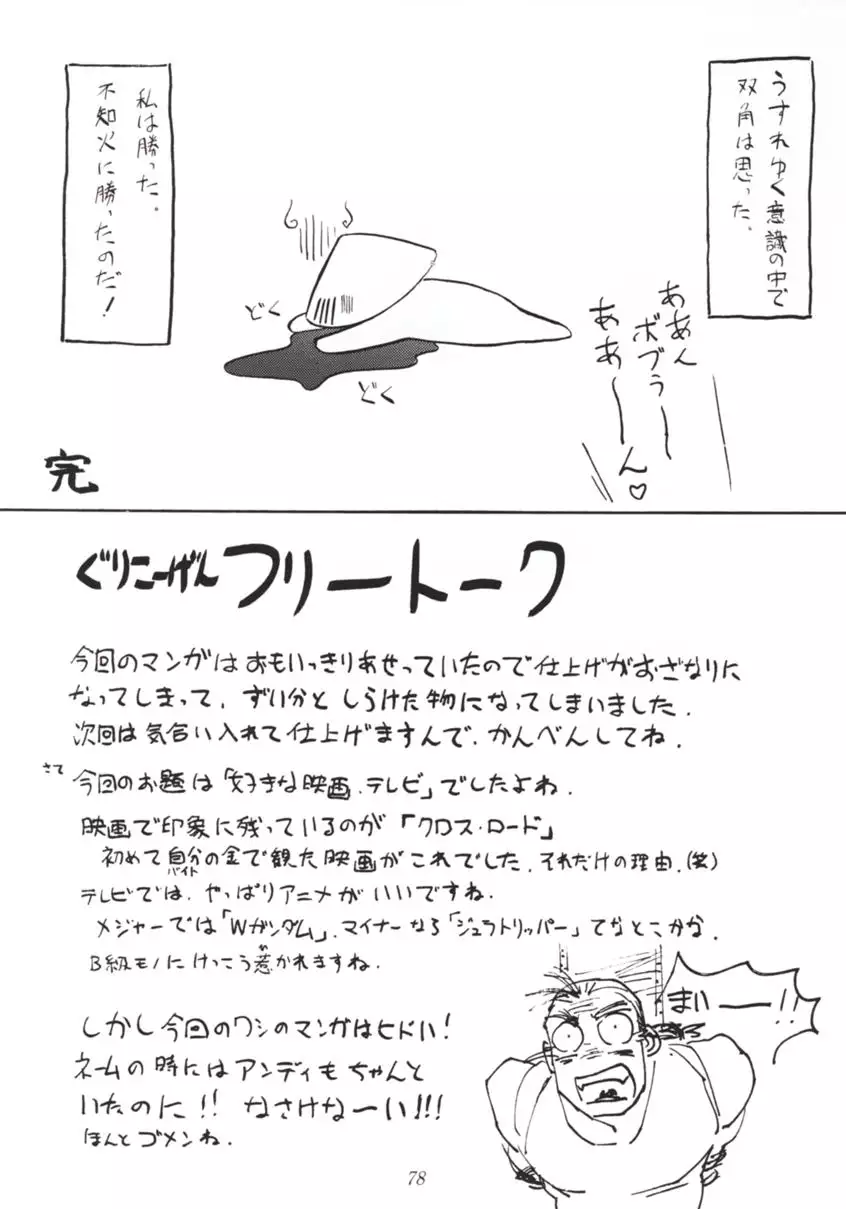 うすれゆく意識の中で
双角は思った。
ああん
ボブぅーー
ああーーん♡
どく
どく
私は勝った。
不知火に勝ったのだ!
完
ぐりこーげん フリートーク
今回のマンガはおもいっきりあせっていたので仕上げがおざなりに
なってしまって、ずい分としらけた物になってしまいました.
次回は気合い入れて仕上げますんで、かんべんしてね.
さて
今回のお題は「好きな映画、テレビ」でしたよね.
映画で印象に残っているのが「クロス・ロード」
初めて自分の金で観た映画がこれでした.それだけの理由.(笑)
バイト
テレビでは、やっぱりアニメがいいですね.
メジャーでは「Wガンダム」、マイナーなら「ジュラトリッパー」てなとこかな.
B級モノにけっこう惹かれますね.
ひ
まいーー!!
しかし今回のワシのマンガはヒドい!
ネームの時にはアンディもちゃんと
いたのに!! なさけなーい!!!
ほんとゴメンね.
78